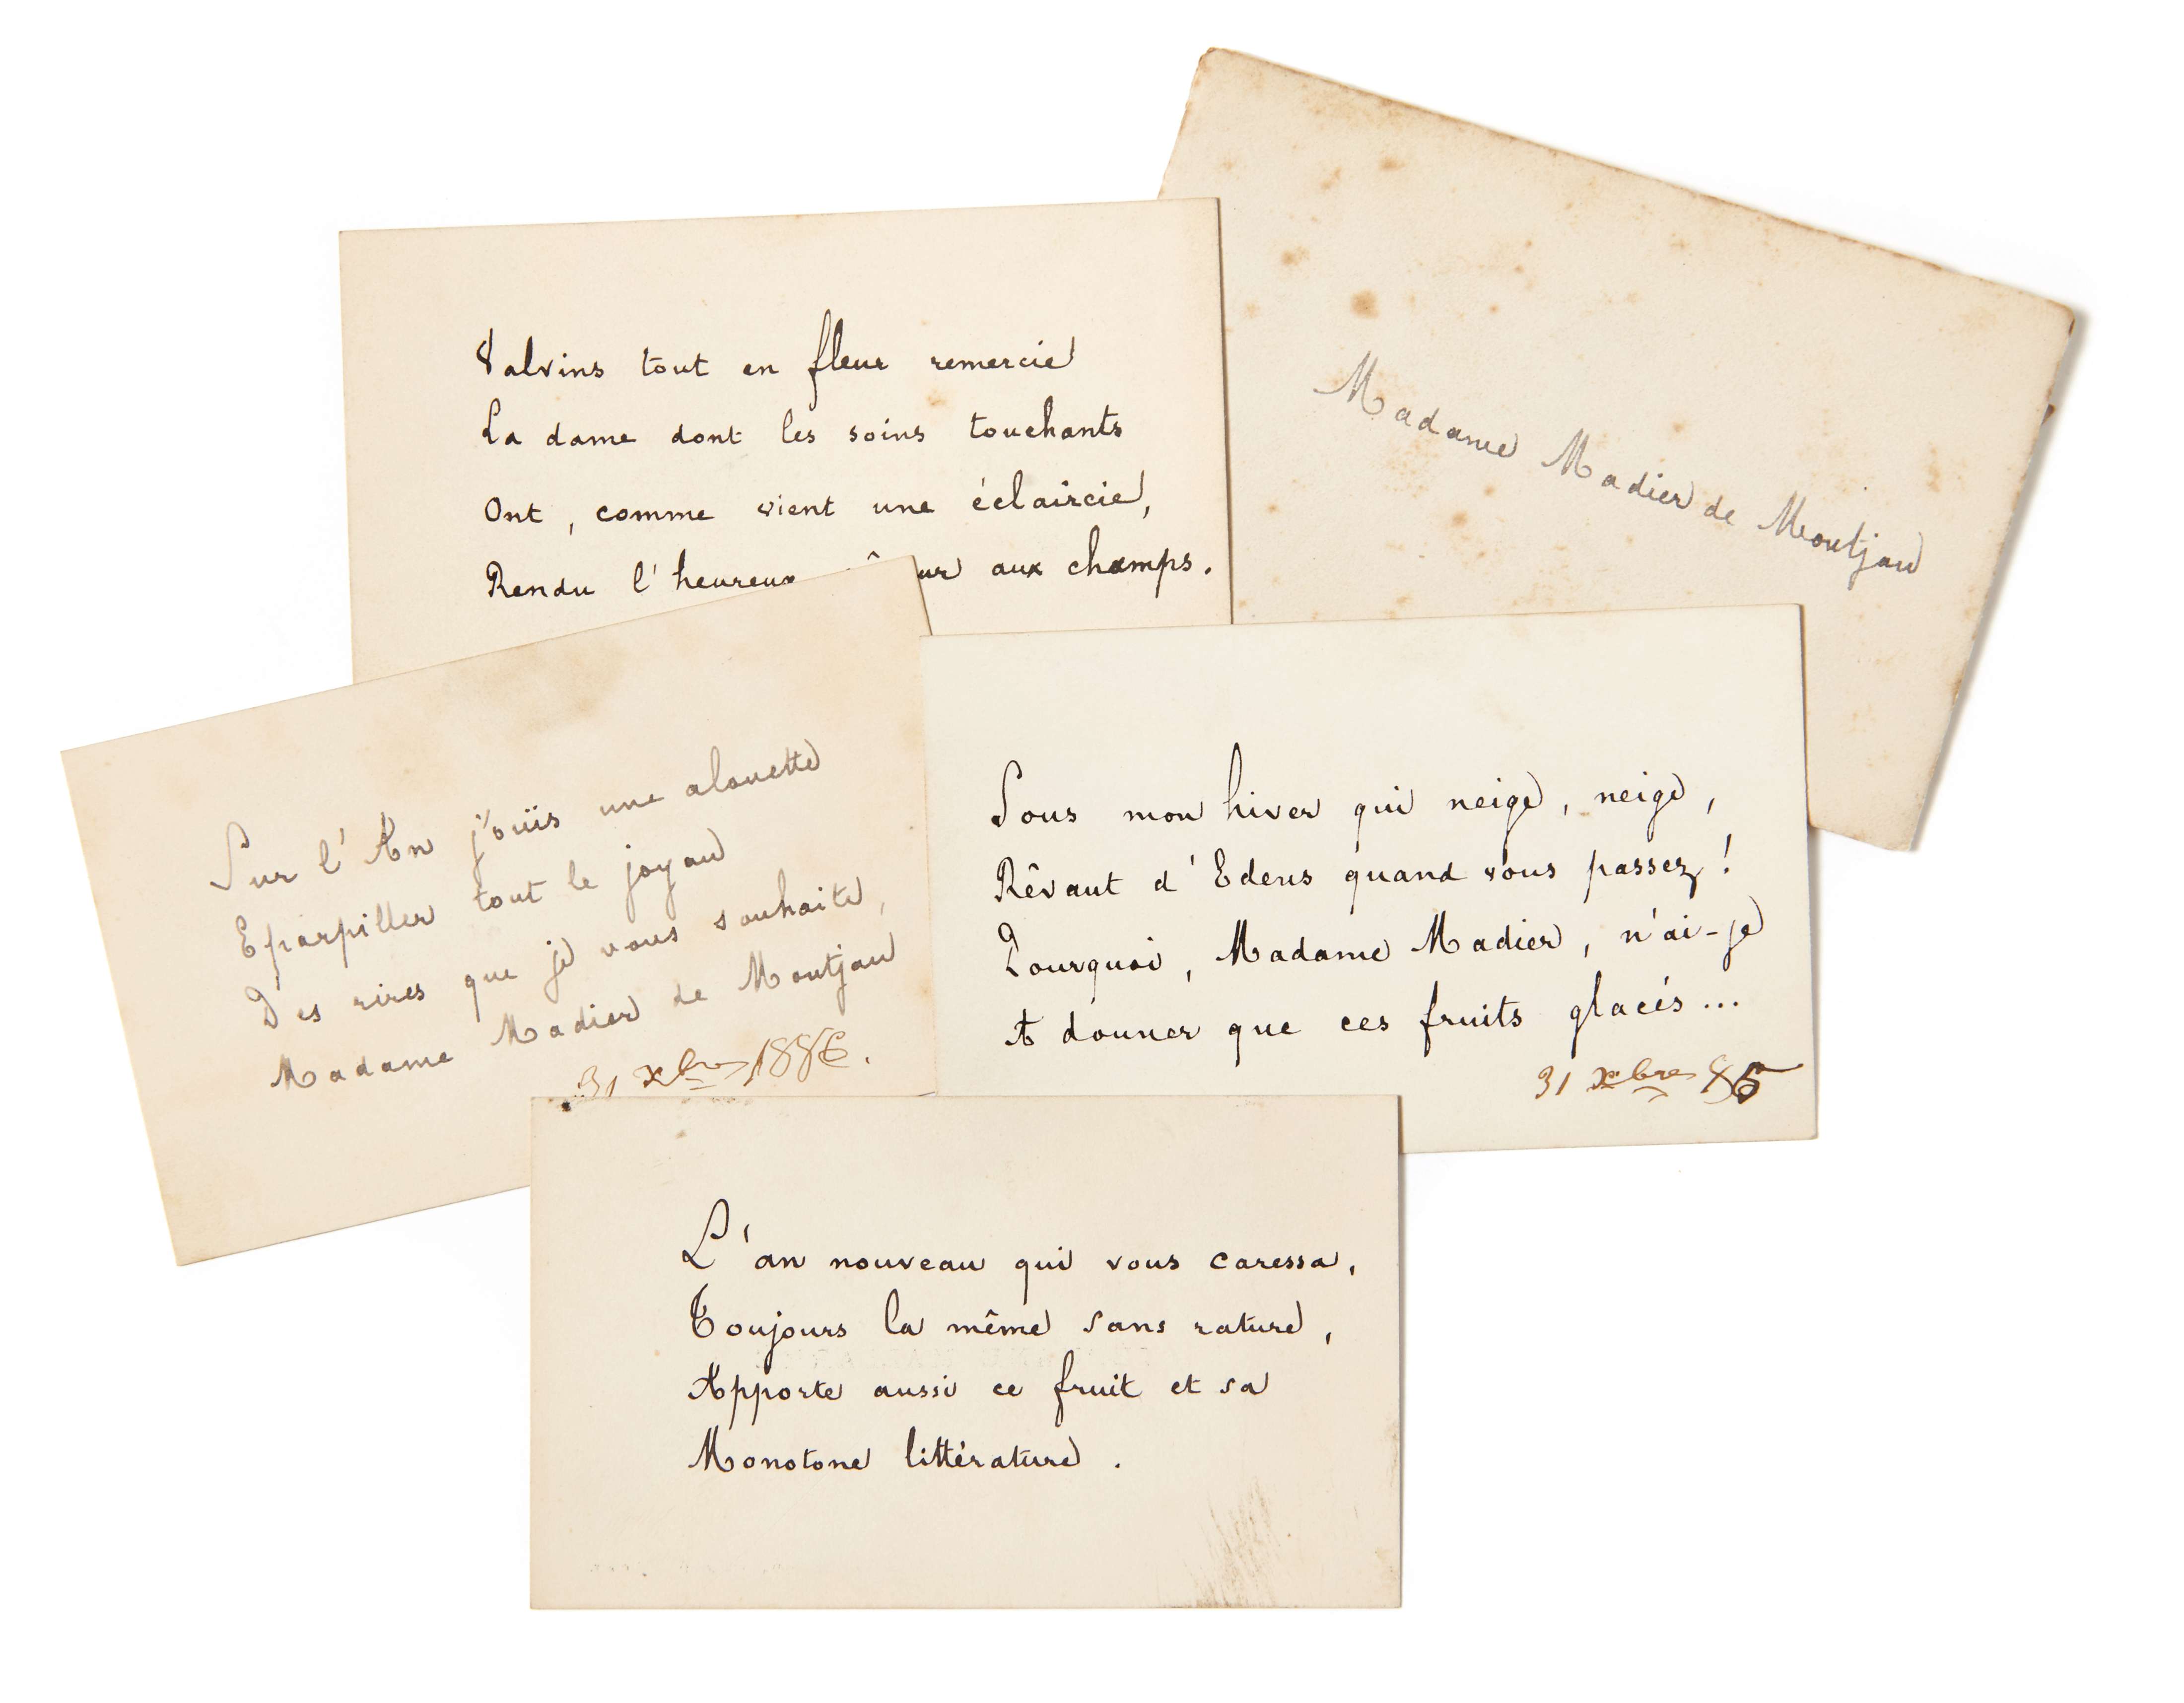 Valvins tout en fleur remercie
La dame dont les soins touchants
Ont, comme vient une éclaircie,
Rendu l'heureux aux champs.
Madame Madier de Montjau
Sur l'An j'ouïs une alouette
Eparpiller tout le joyau
Des rires que je vous souhaite,
Madame Madier de Montjau
31 xbre 1886.
Sous mon hiver qui neige, neige,
Rêvant d'Edens quand vous passez!
Pourquoi, Madame Madier, n'ai-je
A donner que ces fruits glacés...
31 xbre 85
L'an nouveau qui vous caressa,
Toujours la même sans rature,
Apporte aussi ce fruit et sa
Monotone littérature.